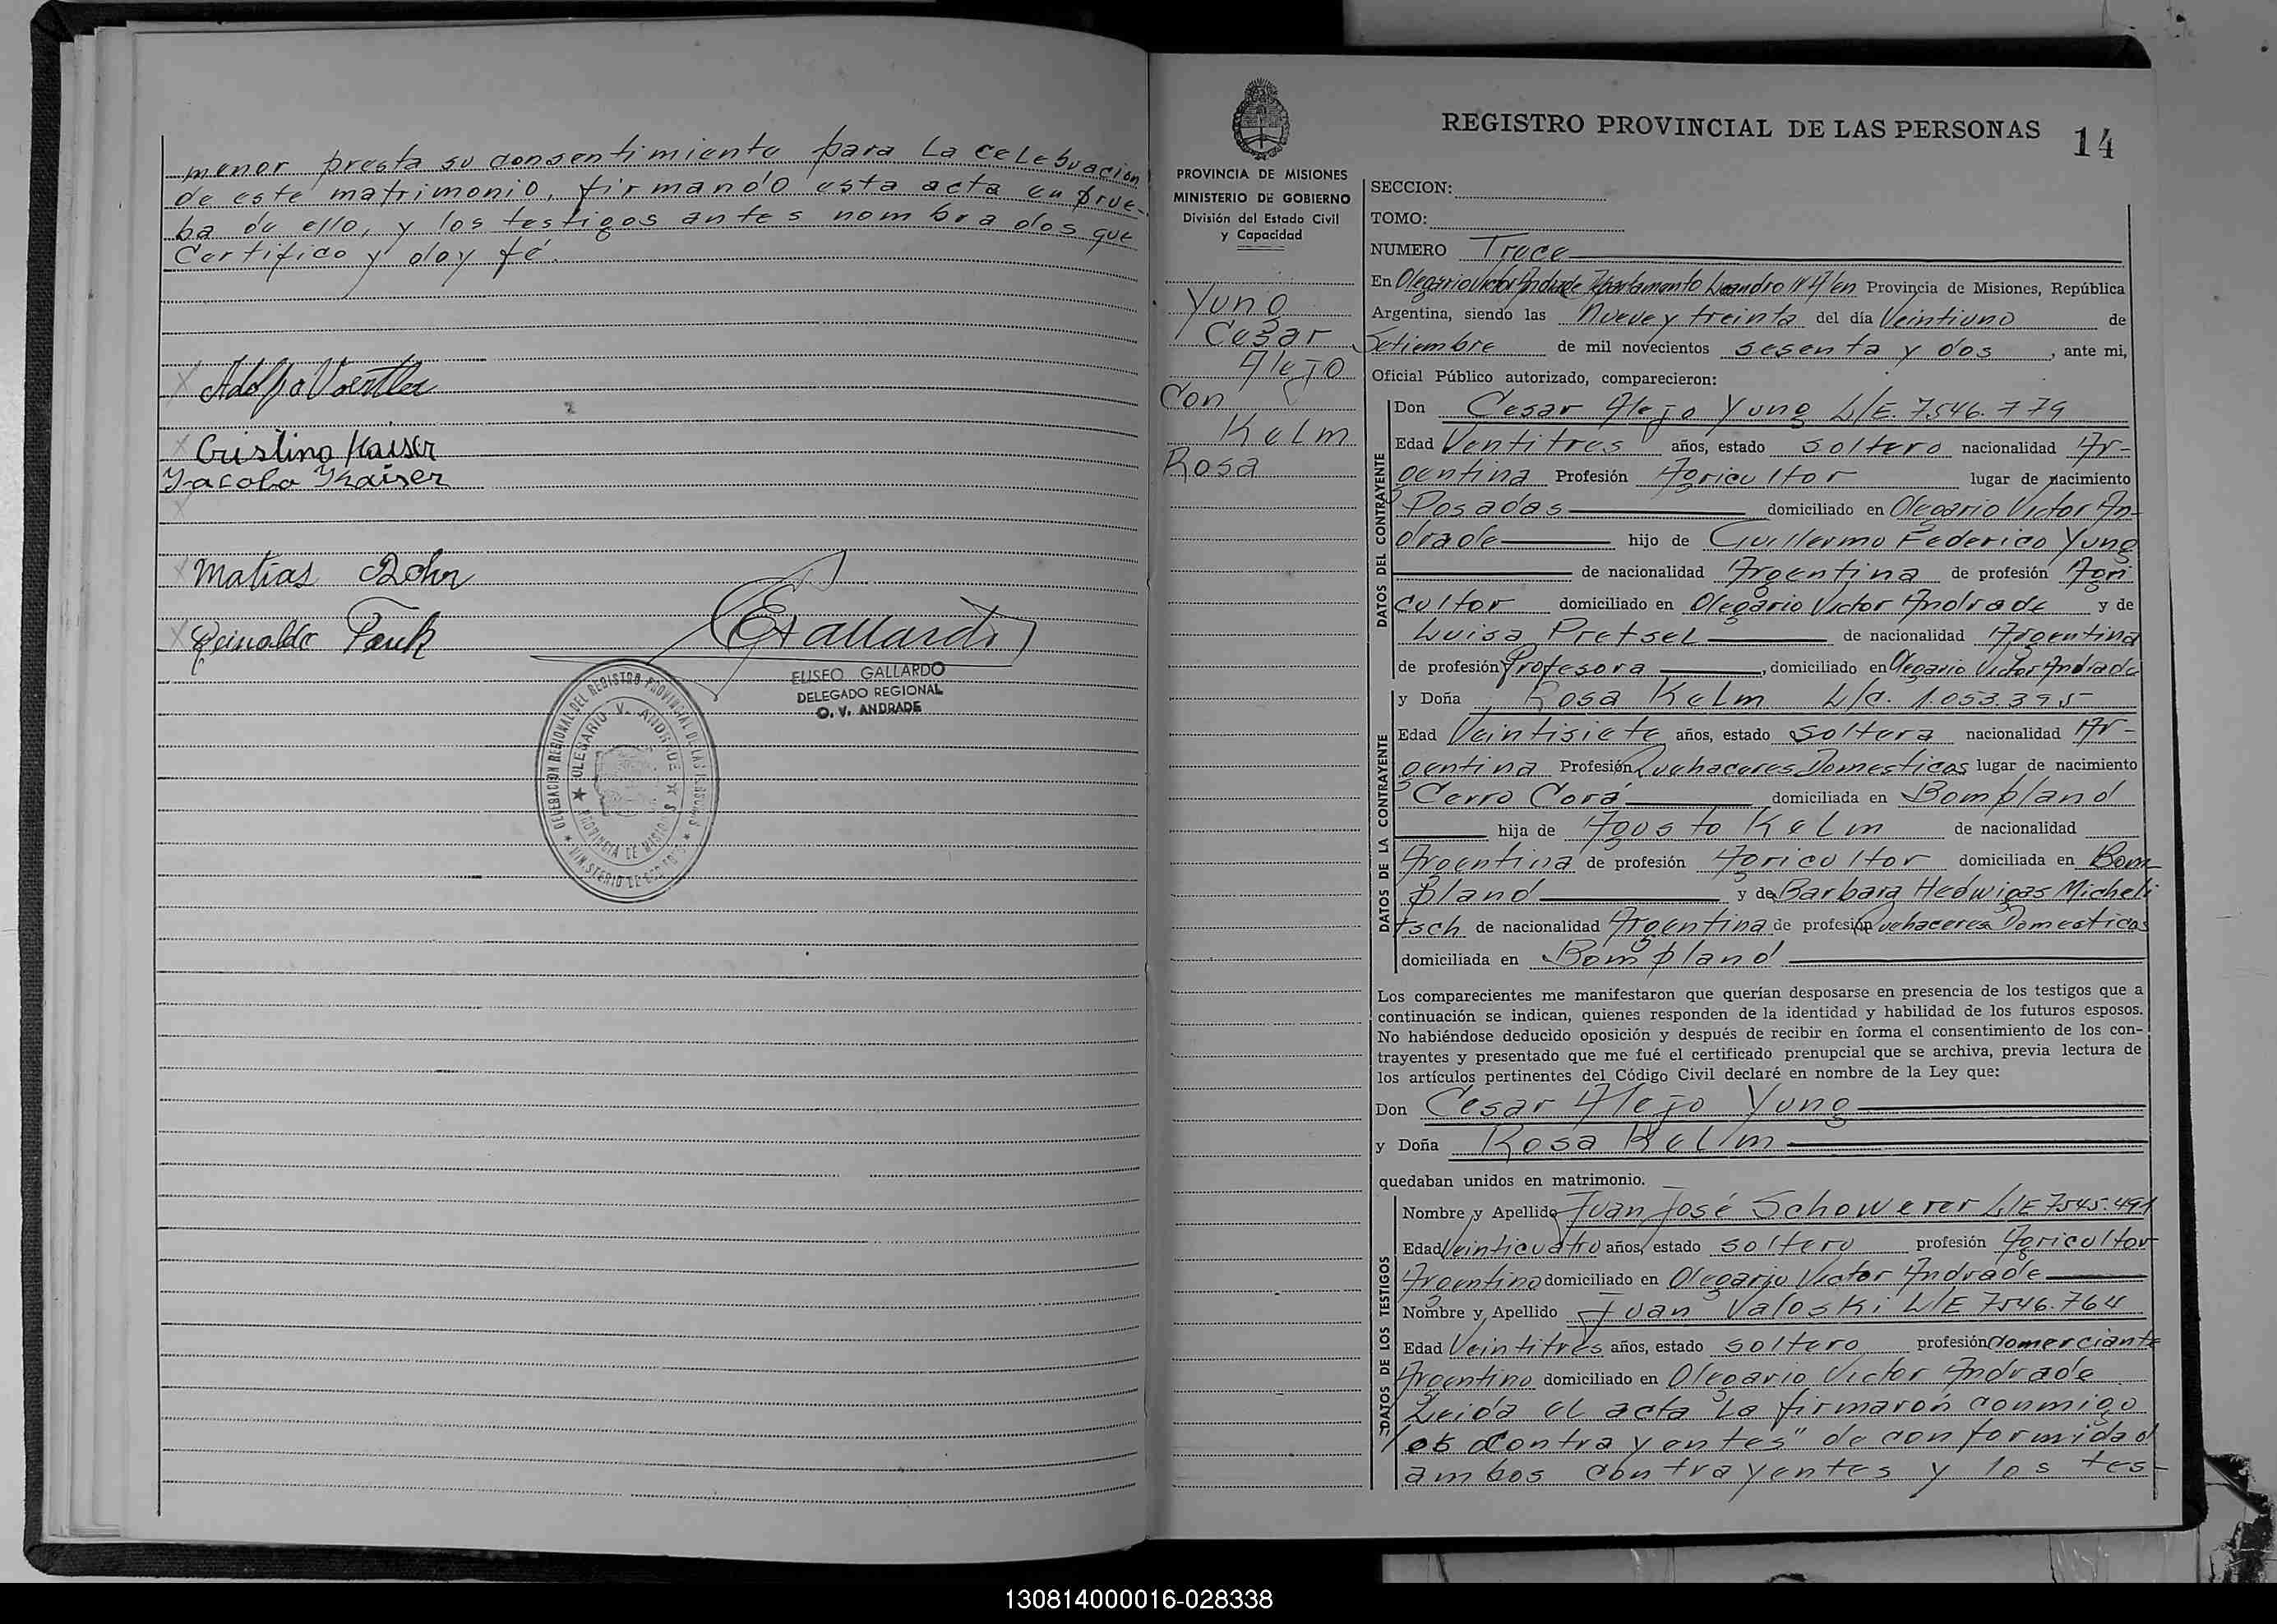 menor presta su consentimiento para la celebracion
de este matrimonio, firmando esta acta en prue-
ba de ello, y los testigos antes nombrados que
Certifico y doy fé.
Adolfo Voertler
Cristina Kaiser
Jacobo Kaiser
Matias Rohr
Reinaldo Tauk
EGallardo
ELISEO GALLARDO
DELEGADO REGIONAL
O. V. ANDRADE
DELEGACION REGIONAL DEL REGISTRO PROVINCIAL DE LAS PERSONAS
OLEGARIO V. ANDRADE
PROVINCIA DE MISIONES
MINISTERIO DE GOBIERNO
REGISTRO PROVINCIAL DE LAS PERSONAS 14
PROVINCIA DE MISIONES
MINISTERIO DE GOBIERNO
División del Estado Civil
y Capacidad
Yung
Cesar
Alejo
Con
Kelm
Rosa
SECCION:
TOMO:
NUMERO Trece
En Olegario Victor Andrade Departamento Leandro N Alen Provincia de Misiones, República
Argentina, siendo las Nueve y treinta del día Veintiuno de
Setiembre de mil novecientos sesenta y dos, ante mi,
Oficial Público autorizado, comparecieron:
DATOS DEL CONTRAYENTE
Don Cesar Alejo Yung L/E. 7.546.779
Edad Ventitres años, estado soltero nacionalidad Ar-
gentina Profesión Agricultor lugar de nacimiento
Posadas domiciliado en Olegario Victor An-
drade hijo de Guillermo Federico Yung
de nacionalidad Argentina de profesión Agri
cultor domiciliado en Olegario Victor Andrade y de
Luisa Pretsel de nacionalidad Argentina
de profesión Profesora, domiciliado en Olegario Victor Andrade
DATOS DE LA CONTRAYENTE
y Doña Rosa Kelm L/C. 1.053.395
Edad Veintisiete años, estado Soltera nacionalidad Ar-
gentina Profesión Quehaceres Domesticos lugar de nacimiento
Cerro Corá domiciliada en Bompland
hija de Agosto Kelm de nacionalidad
Argentina de profesión Agricultor domiciliada en Bom
pland y de Barbara Hedwigas Micheli
tsch de nacionalidad Argentina de profesión Quehaceres Domesticos
domiciliada en Bompland
Los comparecientes me manifestaron que querían desposarse en presencia de los testigos que a
continuación se indican, quienes responden de la identidad y habilidad de los futuros esposos.
No habiéndose deducido oposición y después de recibir en forma el consentimiento de los con-
trayentes y presentado que me fué el certificado prenupcial que se archiva, previa lectura de
los artículos pertinentes del Código Civil declaré en nombre de la Ley que:
Don Cesar Alejo Yung
y Doña Rosa Kelm
quedaban unidos en matrimonio.
DATOS DE LOS TESTIGOS
Nombre y Apellido Juan José Schowerer L/E 7.545.491
Edad Veinticuatro años, estado soltero profesión Agricultor
Argentino domiciliado en Olegario Victor Andrade
Nombre y Apellido Juan Valoski L/E 7546.764
Edad Veintitres años, estado soltero profesión Comerciante
Argentino domiciliado en Olegario Victor Andrade
Leida el acta la firmaron conmigo
"los Contrayentes" de conformidad
ambos contrayentes y los tes-
130814000016-028338